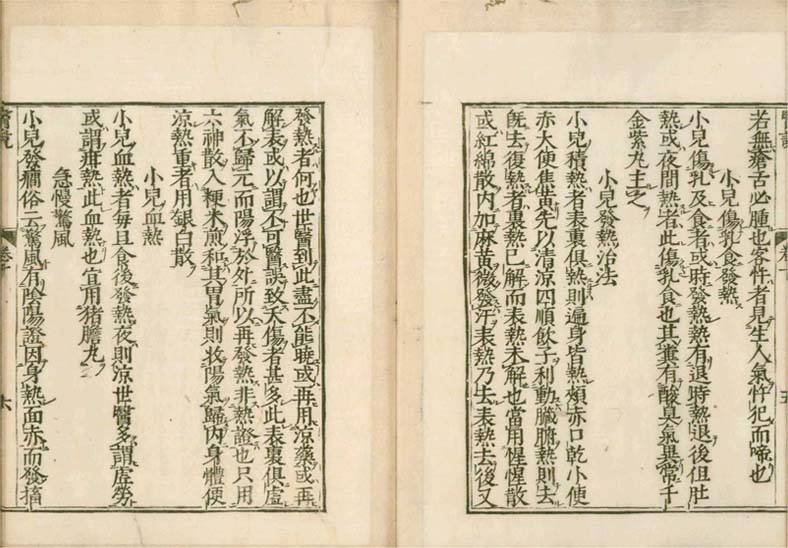 醫說
卷十
五
若無瘡舌必腫也客忤者見生人氣忤犯而啼也
小兒傷乳食發熱
小兒傷乳及食者或時發熱熱有退時熱退後但肚
熱或夜間熱者此傷乳食也其糞有酸臭氣異常千
金紫丸主之
小兒發熱治法
小兒積熱者表裏俱熱則遍身皆熱頰赤口乾小便
赤大便焦黃先以清涼四順飲子利動臟腑熱則去
旣去復熱者裏熱已解而表熱未解也當用惺惺散
或紅綿散內加麻黃微發汗表熱乃去表熱去後又
發熱者何也世醫到此盡不能曉或再用涼藥或再
解表或以謂不可醫誤致夭傷者甚多此表裏俱虛
氣不歸元而陽浮於外所以再發熱非熱證也只用
六神散入粳米煎和其胃氣則收陽氣歸內身體便
涼熱重者用銀白散
小兒血熱
小兒血熱者每旦食後發熱夜則涼世醫多謂虛勞
或謂疳熱此血熱也宜用猪膽丸
急慢驚風
小兒發癇俗云驚風有陰陽證因身熱面赤而發搐
醫說
卷十
六